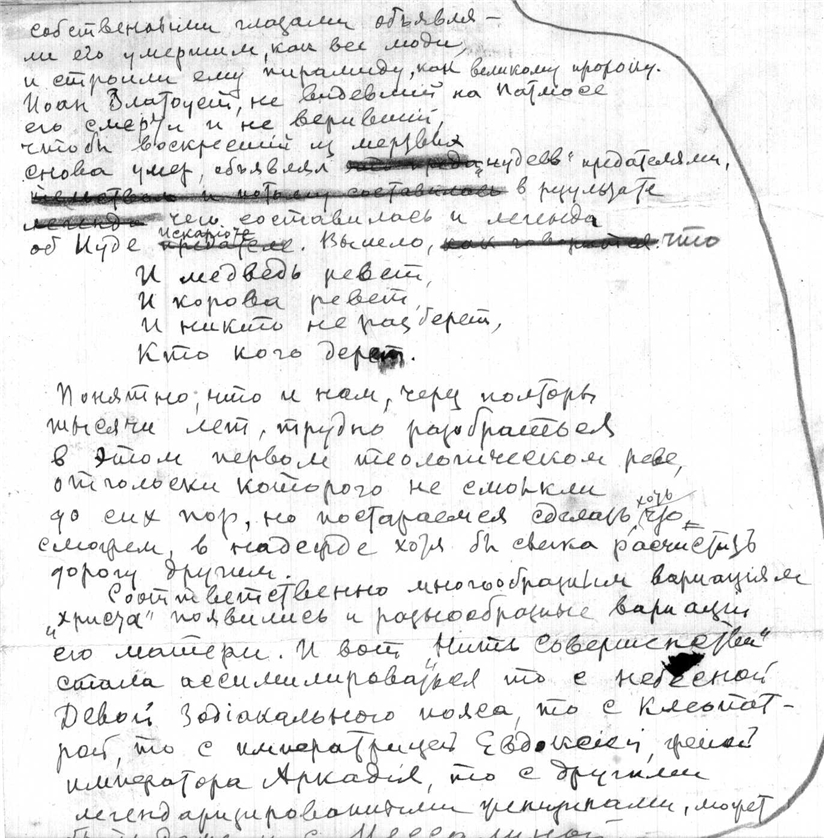 собственными глазами объявля-
ли его умершим, как все люди,
и строили ему пирамиду, как великому пророку.
Иоан Златоуст, не видевший на Патмосе
его смерти и не веривший,
чтобы воскресший из мертвых
снова умер, объявлял "иудеев" предателями,
и потому составилась в результате
легенда чего составилась и легенда
об Иуде Искариоте
предателе. Вышло, как говорится что
И медведь ревет,
И корова ревет,
И никто не разберет,
Кто кого дерет.
Понятно, что и нам, через полторы
тысячи лет, трудно разобраться
в этом первом теологическом реве,
отголоски которого не смолкли
до сих пор, но постараемся сделать хоть что
сможем, в надежде хотя бы слегка расчистить
дорогу другим.
Соответственно многообразным вариаціям
"христа" появились и разнообразные вариации
его матери. И вот "Мить Совершенства"
стала ассимилироваться то с небесной
Девой Зодіакального пояса, то с Клеопат-
рой, то с императрицей Евдоксией, женой
императора Аркадія, то с другими
легендаризированными женщинами, может